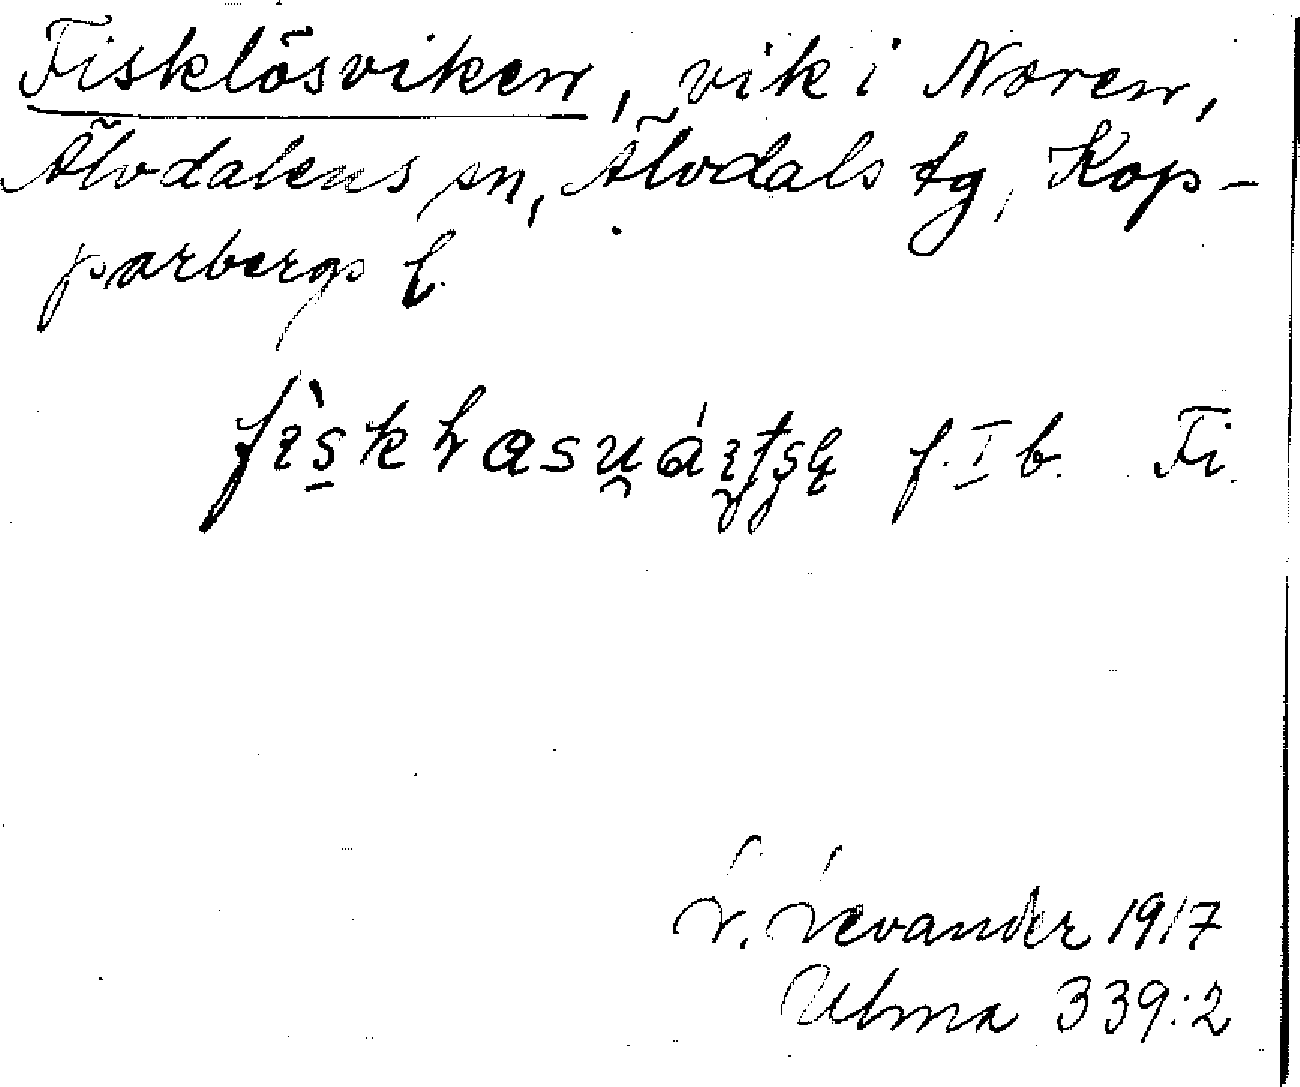 Fisklösviken, vik i Noren,
Älvdalens sn, Älvdals tg, Kop-
parbergs l.
f. I b. Fi.
L. Levander 1917
Ulma 339:2